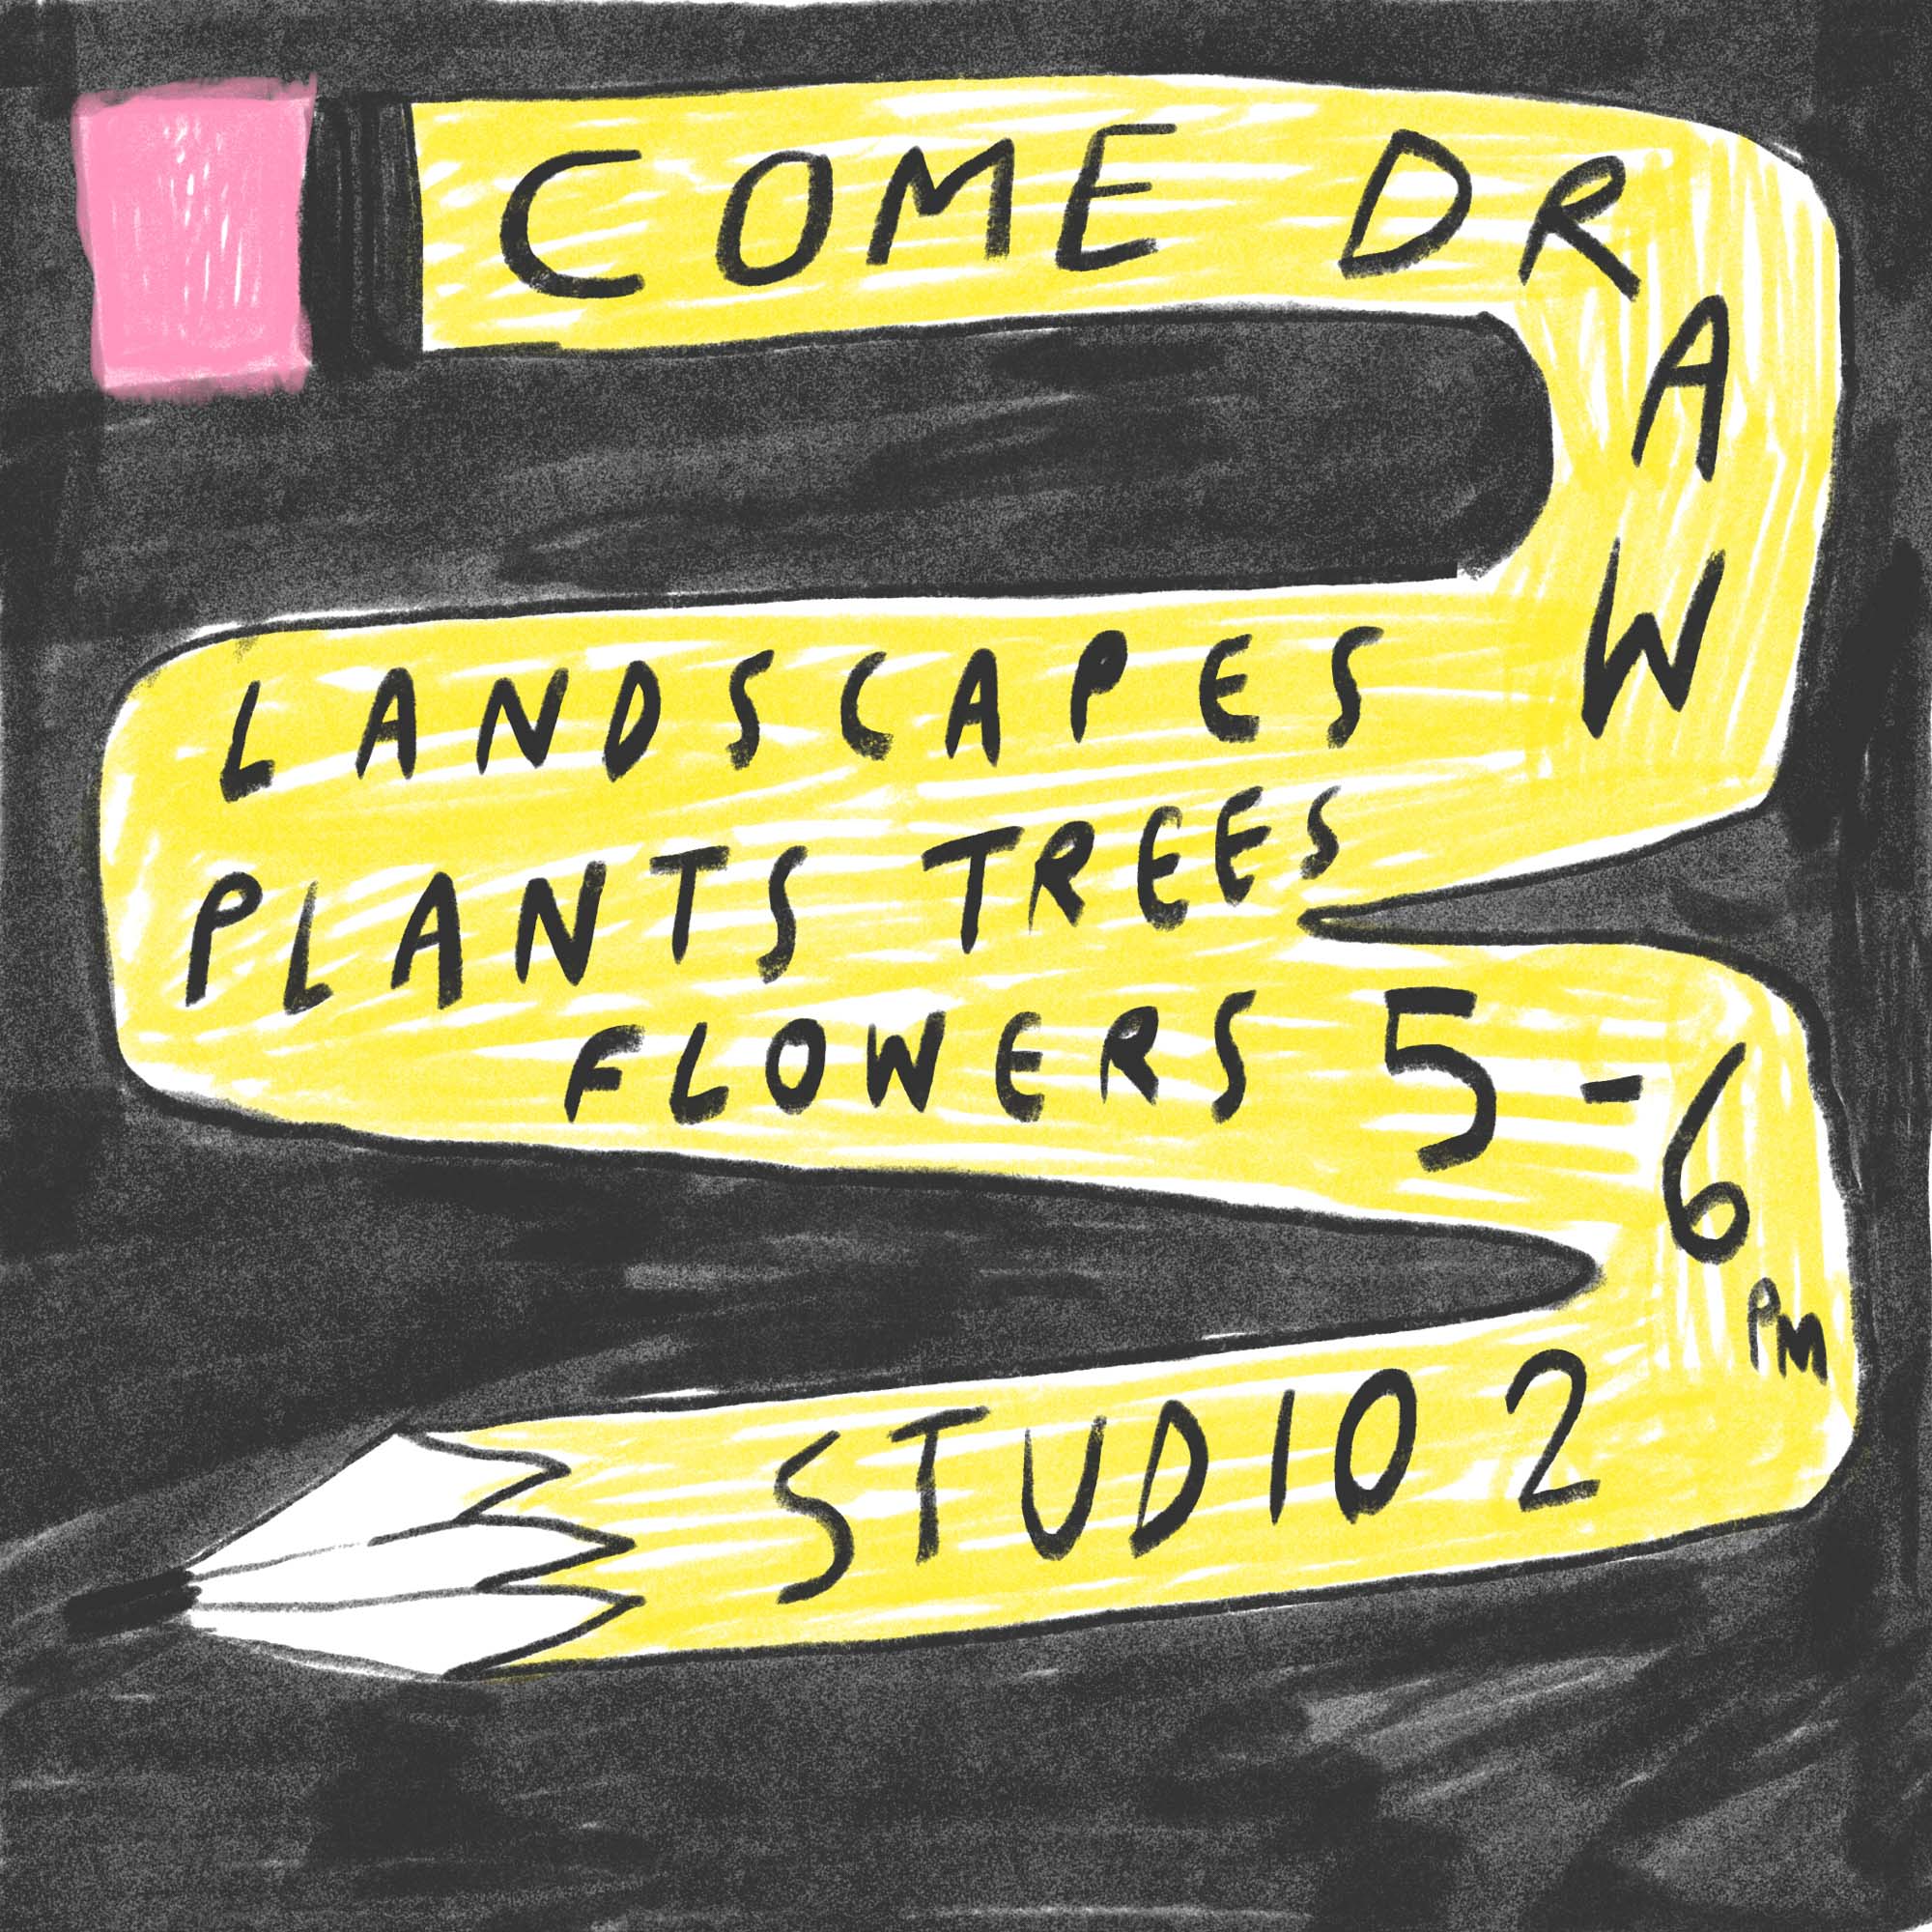 COME DRAW
LANDSCAPES
PLANTS TREES
FLOWERS 5-6 PM
STUDIO 2